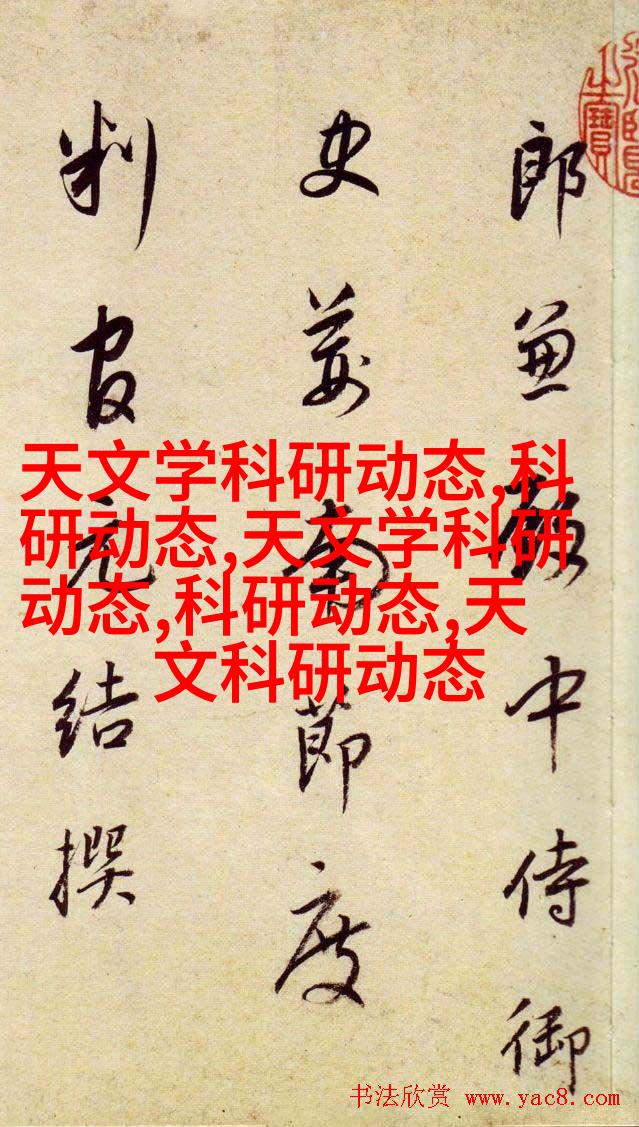 郎兼殿中侍御
史荊南節度
判官元結撰
天文学科研动态,科
研动态,天文学科研
动态,科研动态,天
文科研动态
书法欣赏 www.yac8.com